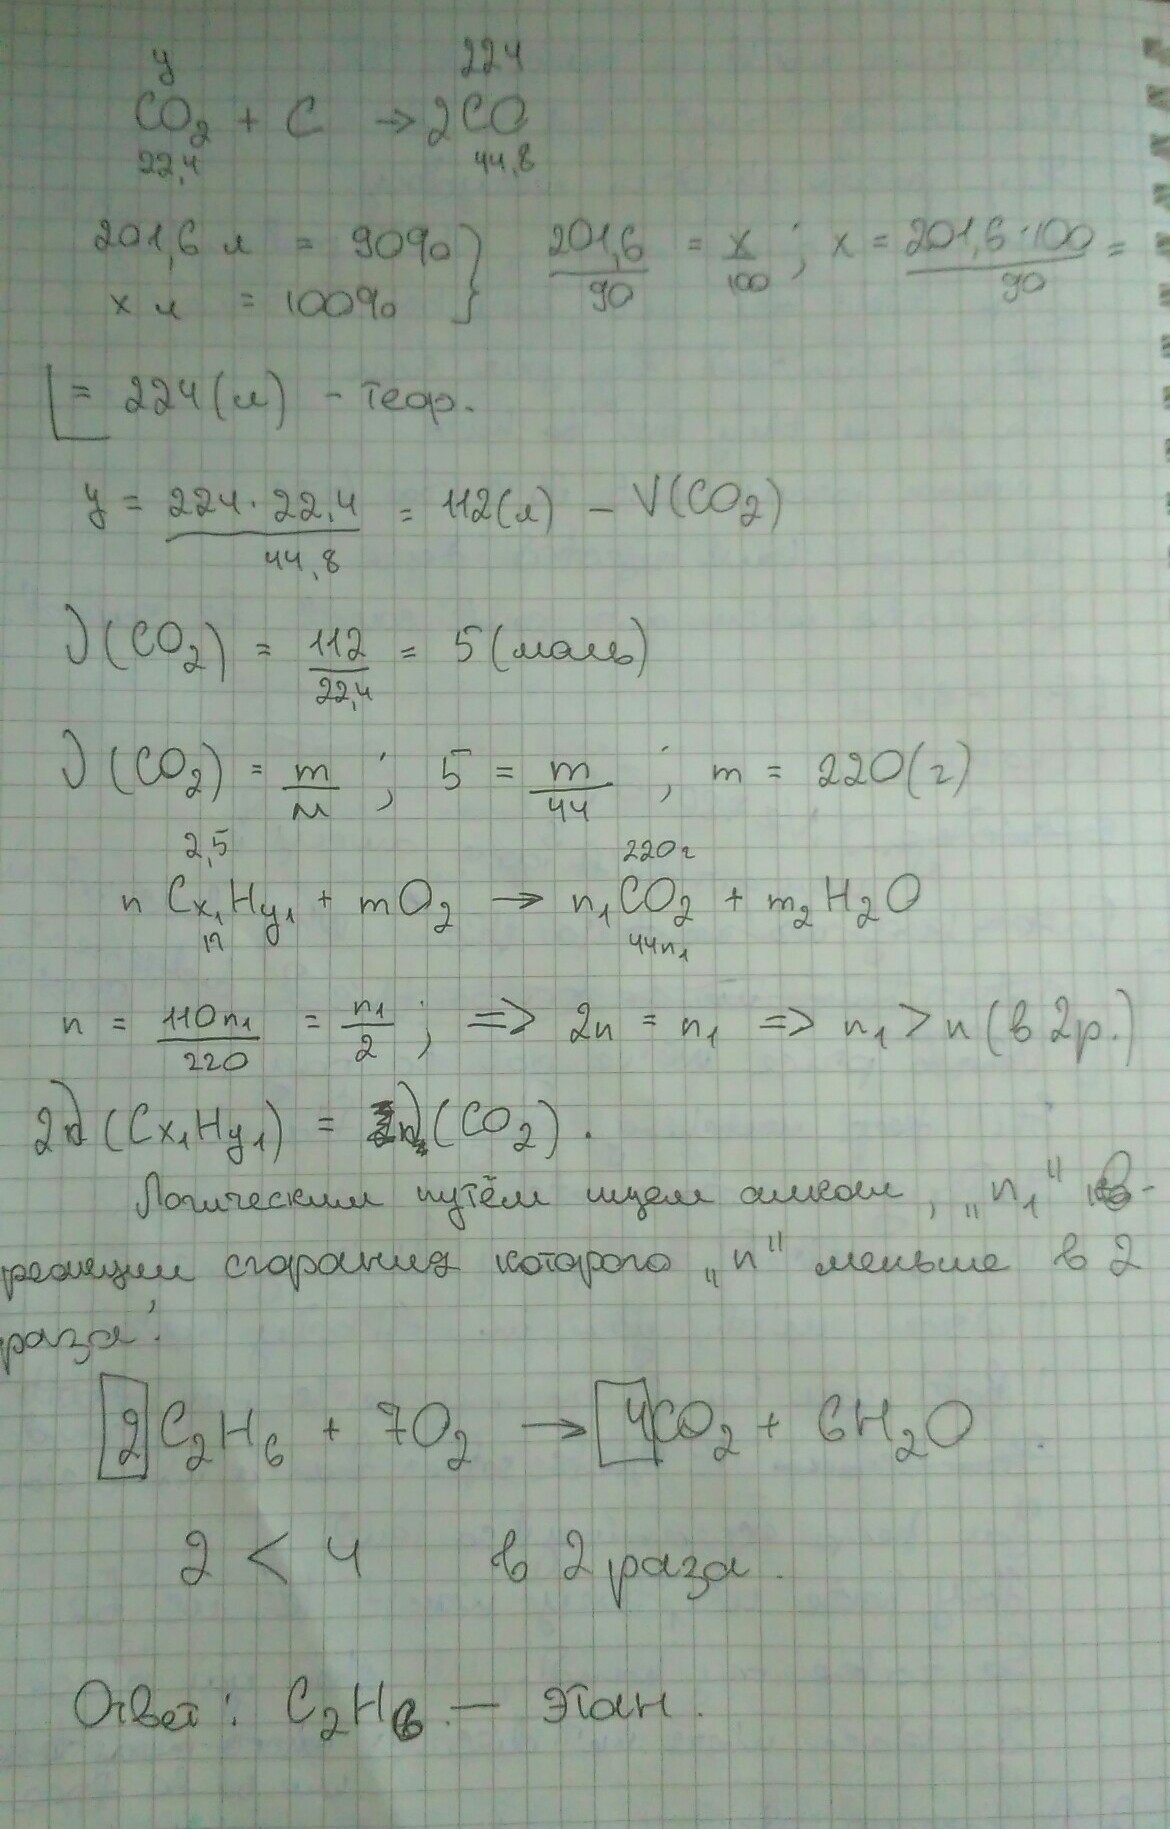 y 224
CO₂ + C → 2CO
22,4 44,8
201,6 л = 90% } 201,6/90 = x/100 ; x = 201,6·100/90 =
x л = 100%
= 224(л) - теор.
y = 224·22,4/44,8 = 112(л) – V(CO₂)
ν(CO₂) = 112/22,4 = 5(моль)
ν(CO₂) = m/M ; 5 = m/44 ; m = 220(г)
2,5 220г
n Cx₁Hy₁ + mO₂ → n₁CO₂ + m₂H₂O
n 44n₁
n = 110n₁/220 = n₁/2 ; => 2n = n₁ => n₁ > n (в 2р.)
2ν(Cx₁Hy₁) = ν(CO₂).
Логическим путём ищем алкан, „n₁"
реакции сгорания которого „n" меньше в 2
раза:
2C₂H₆ + 7O₂ → 4CO₂ + 6H₂O
2 < 4 в 2 раза.
Ответ: C₂H₆ — этан.